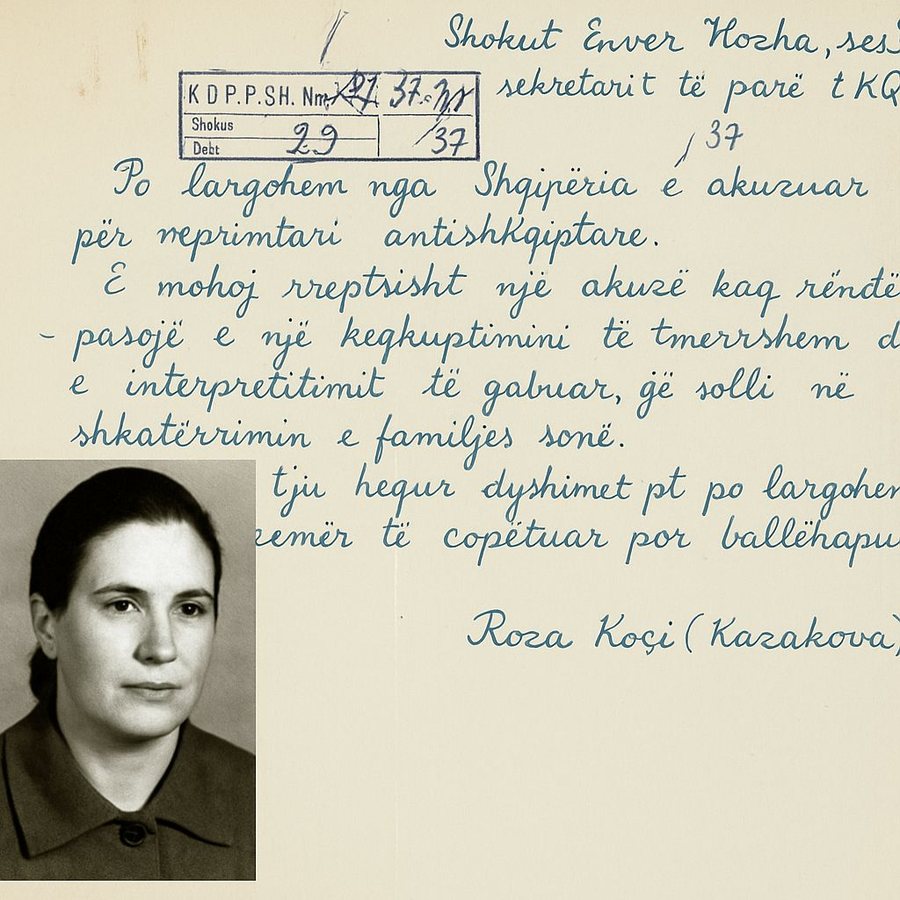 Shokut Enver Hozha, ses
sekretarit të parë t KQ
K D P.P.SH. Nm. 37.
Shokus 29 37
Debt
37
Po largohem nga Shqipëria e akuzuar
për veprimtari antishKqiptare.
E mohoj rreptsisht një akuzë kaq rëndë
- pasojë e një keqkuptimini të tmerrshem d
e interpretitimit të gabuar, që solli në
shkatërrimin e familjes sonë.
tju hequr dyshimet pt po largohem
zemër të copëtuar por ballëhapu
Roza Koçi (Kazakova)